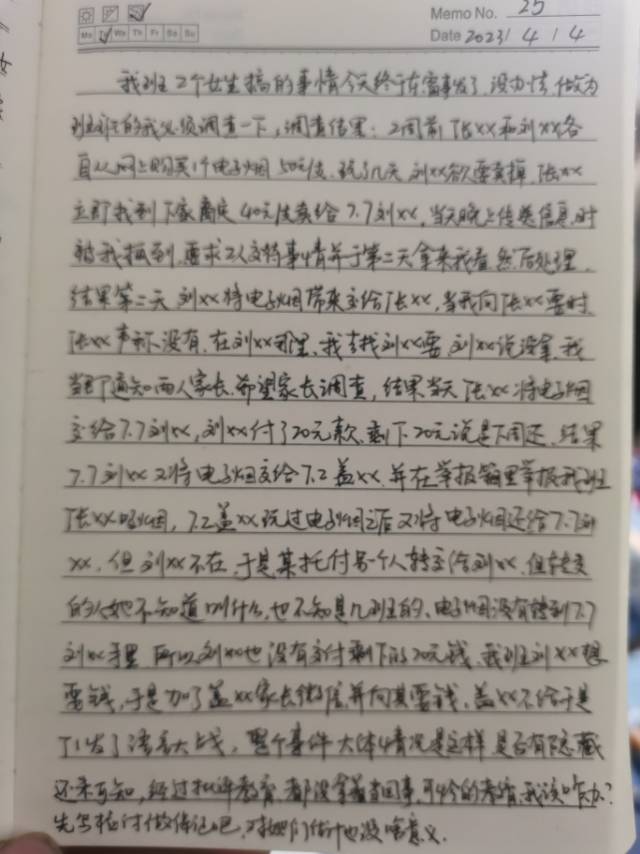 Memo No. 25
Mo Tu We Th Fr Sa Su
Date 2023/ 4 / 4
我班2个女生搞的事情今天终于东窗事发了,没办法,做为
班主任的我必须调查一下,调查结果:2周前张xx和刘xx各
自从网上购买1个电子烟50元/支,玩了几天刘xx欲要卖掉,张xx
立即找到下家商定40元/支卖给7.7刘xx,当天晚上传递信息时
被我抓到,要求2人交待事情并于第二天拿来我看,然后处理,
结果第二天,刘xx将电子烟带来交给张xx,当我向张xx要时,
张xx声称没有,在刘xx那里,我去找刘xx要,刘xx说没拿,我
当即通知两人家长,希望家长调查,结果当天张xx将电子烟
交给7.7刘xx,刘xx付了20元款,剩下20元说是下周还,结果
7.7刘xx又将电子烟交给7.2盖xx,并在举报箱里举报我班
张xx吸烟,7.2盖xx玩过电子烟之后又将电子烟还给7.7刘
xx,但刘xx不在,于是某托付另一个人转交给刘xx,但转交
的人她不知道叫什么,也不知是几班的,电子烟没有转到7.7
刘xx手里,所以刘xx也没有交付剩下的20元钱,我班刘xx想
要钱,于是加了盖xx家长微信,并向其要钱,盖xx不给于是
引发了语言大战,整个事件大体情况是这样,是否有隐藏
还未可知,经过批评教育,都没拿着当回事,可怜的老师,我该咋办?
先写检讨做保证吧,对她们估计也没啥意义.